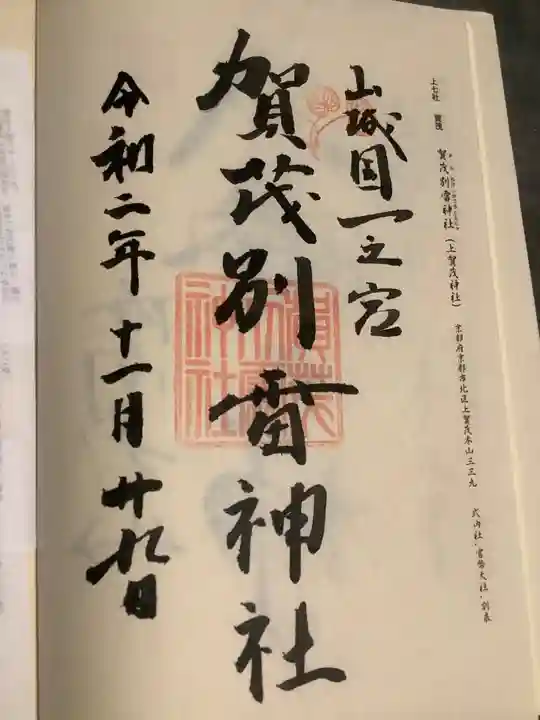 上七社 賀茂 賀茂別雷神社(上賀茂神社) 京都府京都市北区上賀茂本山三三九 式内社・官幣大社・別表
山城国一之宮
賀茂別雷神社
令和二年十一月廿九日